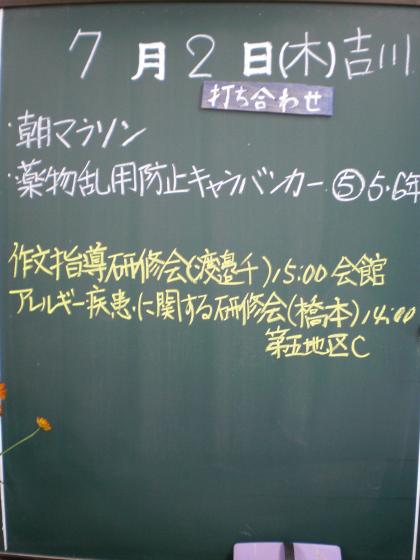 7月2日(木)吉川
打ち合わせ
・朝マラソン
・薬物乱用防止キャラバンカー ⑤5.6年
作文指導研修会(渡邉千)15:00会館
アレルギー疾患に関する研修会(橋本)14:00
第五地区C